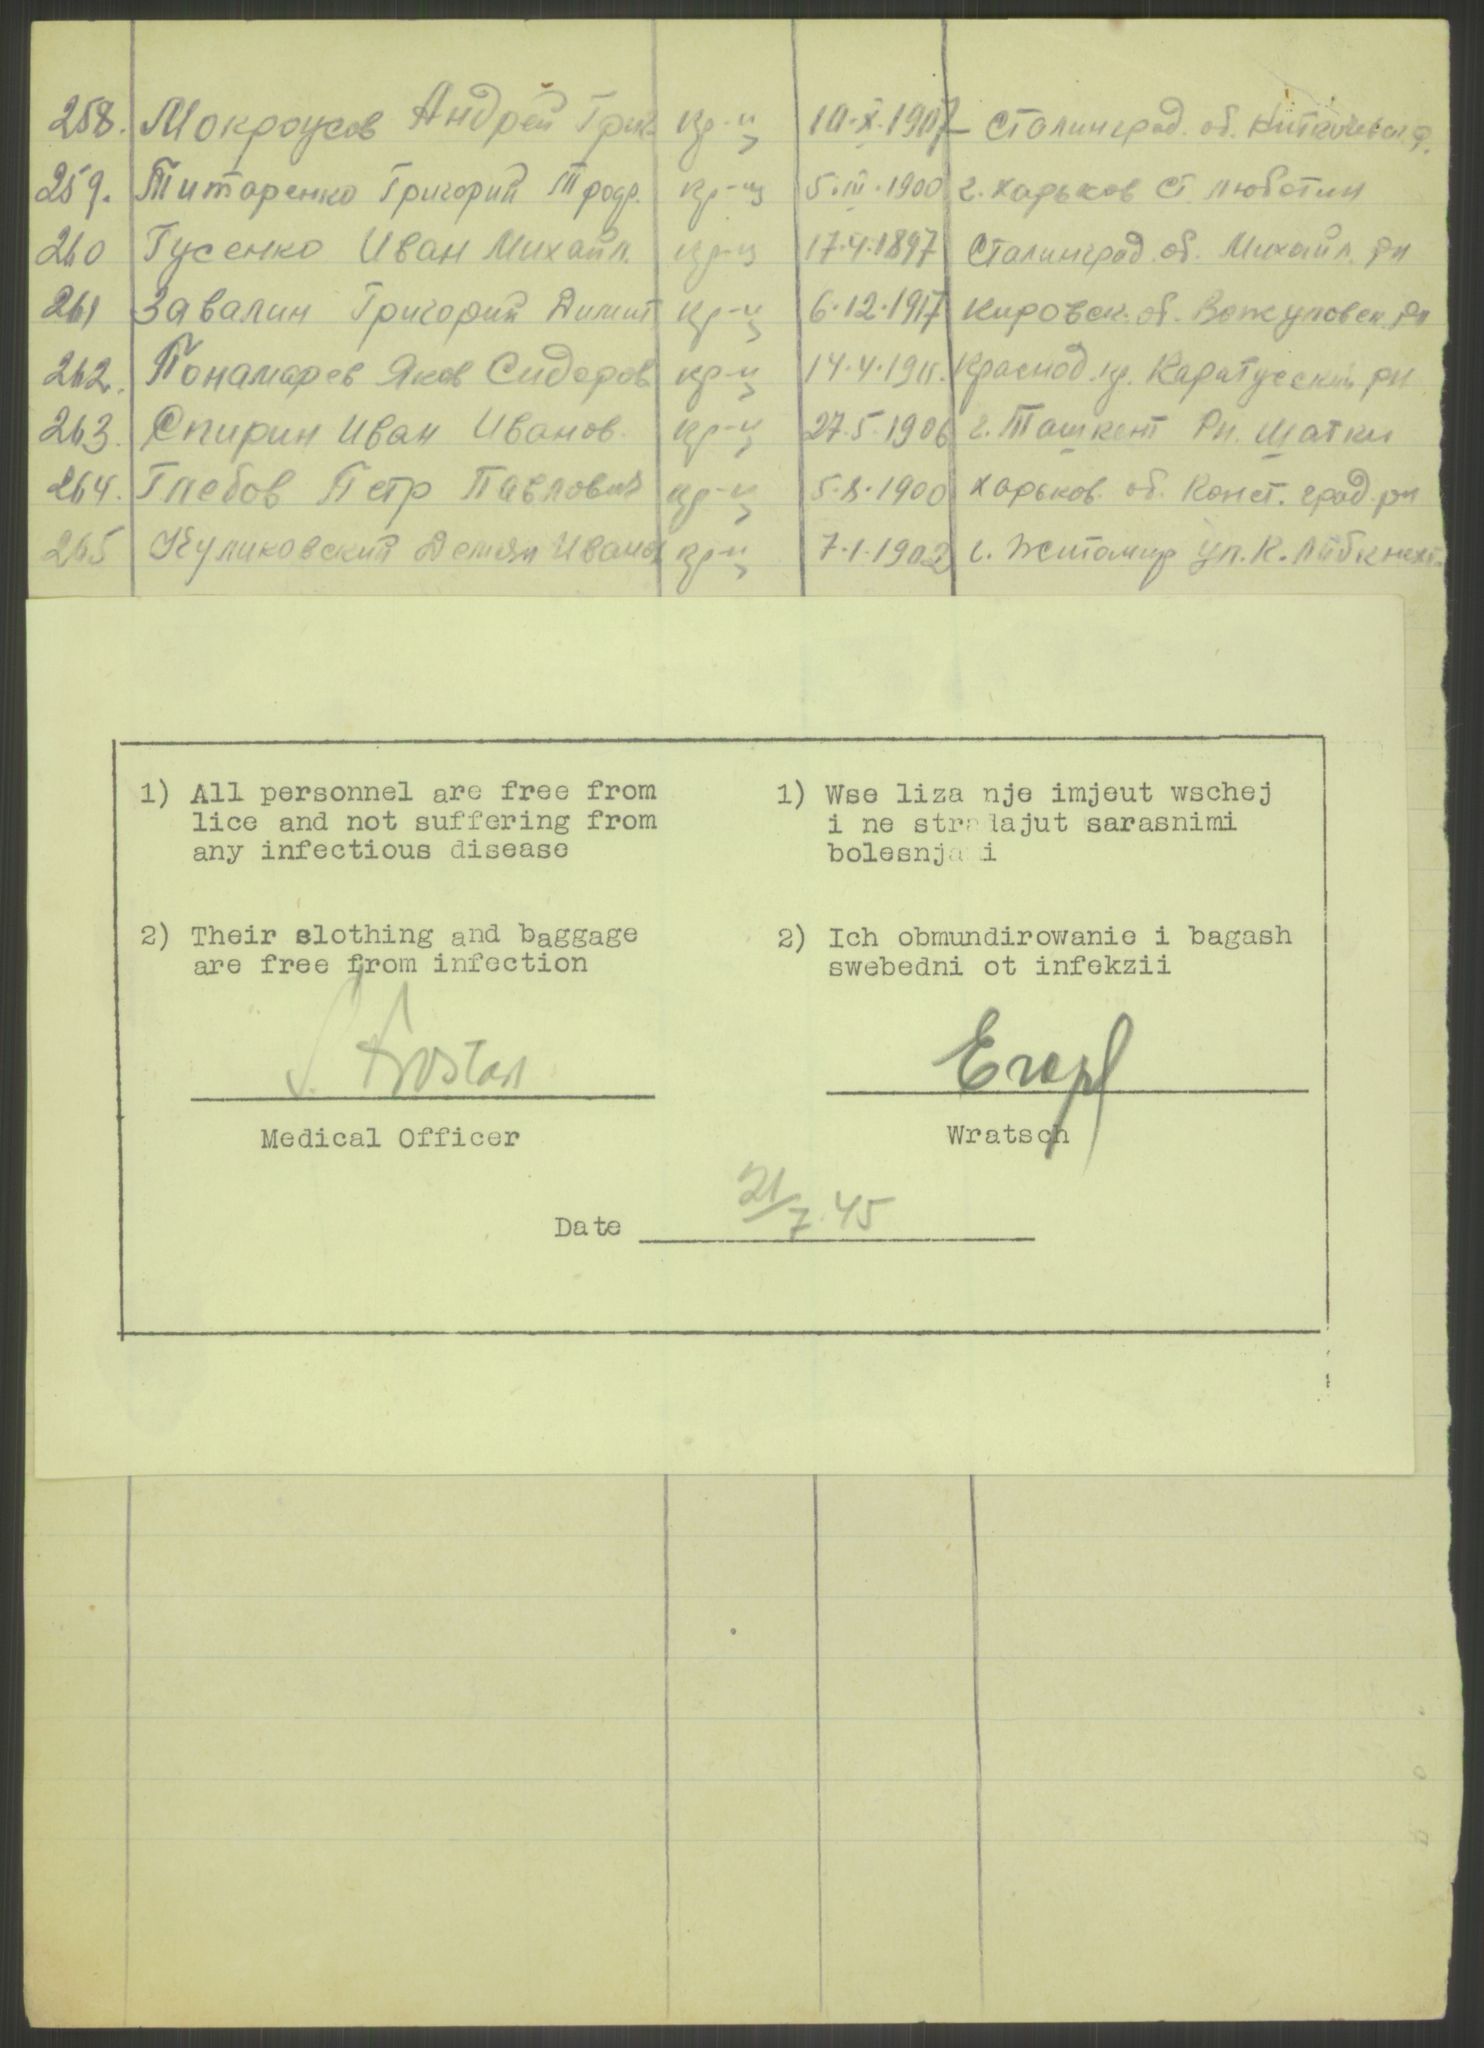 258. Мокроусов Андрей Григ. кр-ц 10.X.1907 Сталинград. об.
259. Титаренко Григорий кр-ц 5.III.1900 г. Харьков ст. Люботин
260 Гусенко Иван Михайл. кр-ц 17.4.1897 Сталинград. об. Михайл. рн
261 Завалин Григорий Димит кр-ц 6.12.1917 Кировск. об. рн
262. Понамарев Яков Сидоров кр-ц 14.4.1911. Краснод. кр. Каратусский рн
263. Спирин Иван Иванов. кр-ц 27.5.1906 г. Ташкент рн. Шатки
264. Глебов Петр Павлович кр-ц 5.8.1900 Харьков. об. Конст. град. рн
265 Куликовский Демян Иванов кр-ц 7.1.1902 г. Житомир ул. К. Либкнехт.
1) All personnel are free from
lice and not suffering from
any infectious disease
2) Their slothing and baggage
are free from infection
Medical Officer
1) Wse liza nje imjeut wschej
i ne stradajut sarasnimi
bolesnjami
2) Ich obmundirowanie i bagash
swebedni ot infekzii
Wratsch
Date 21/7.45